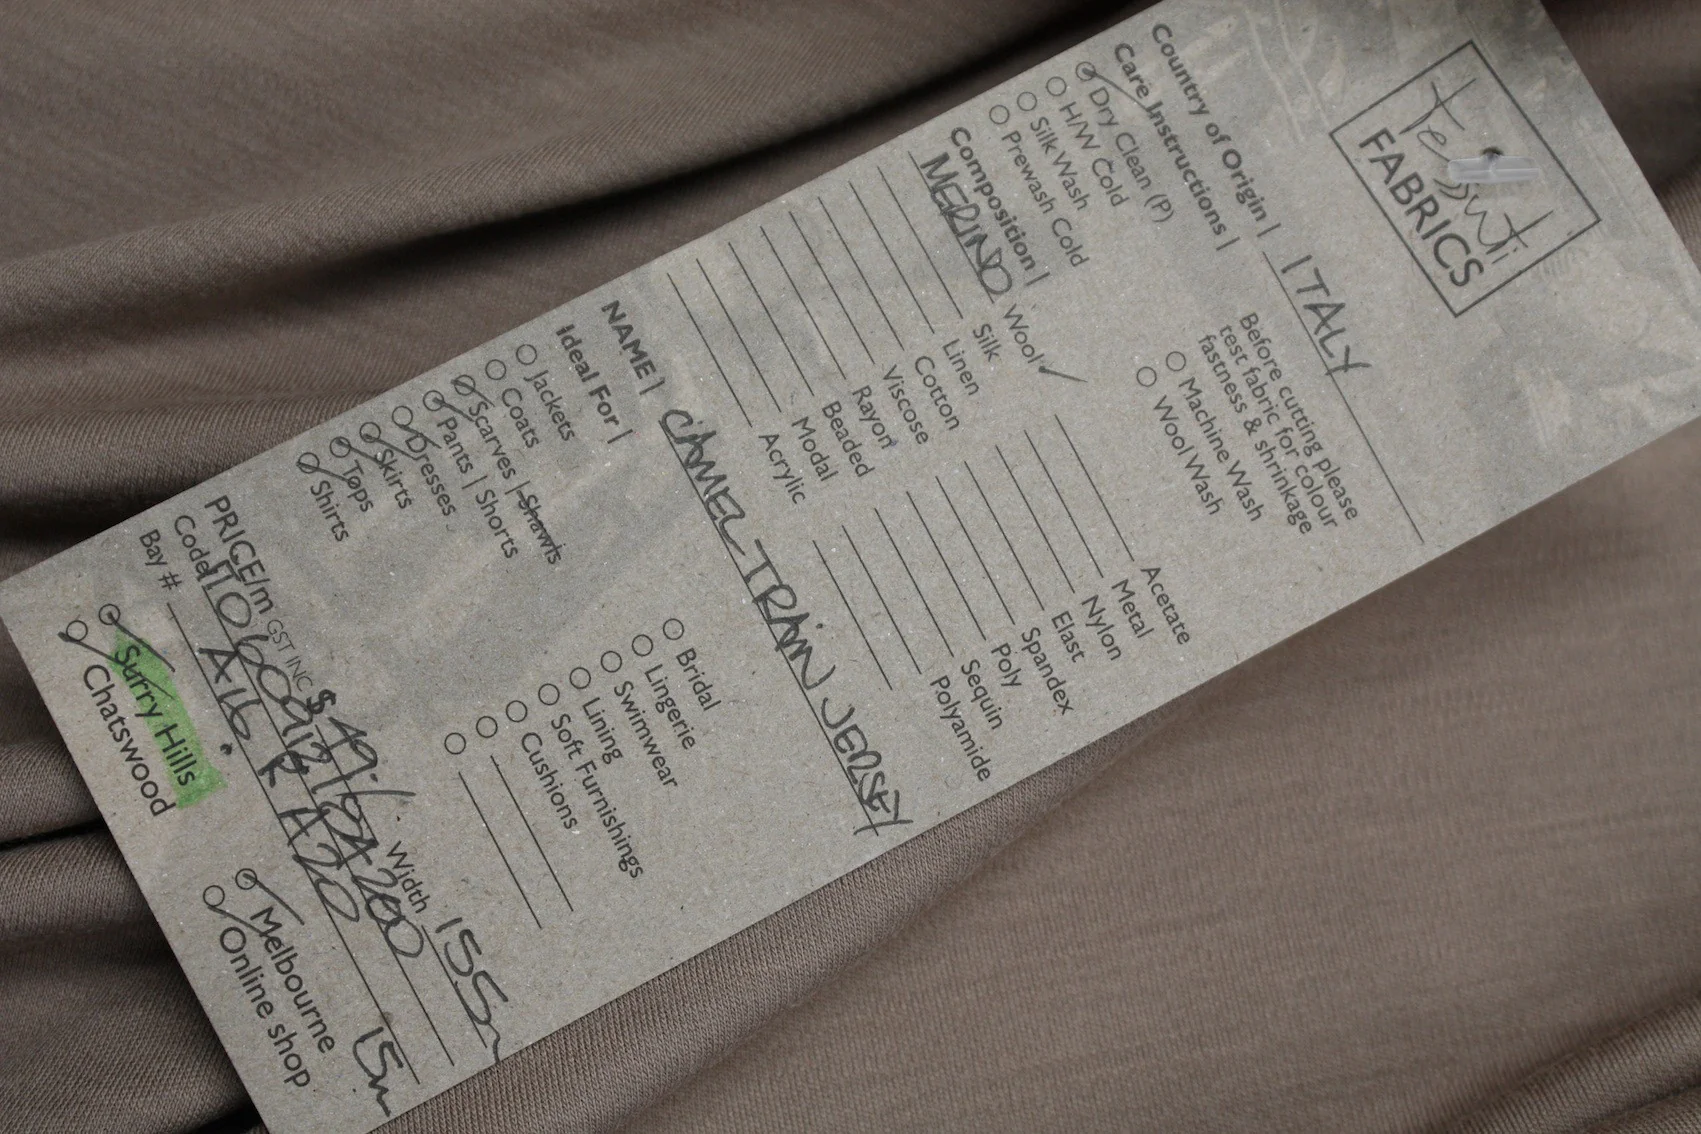 Tessuti
FABRICS
Country of Origin | ITALY
Care Instructions |
Dry Clean (P)
H/W Cold
Silk Wash
Prewash Cold
Before cutting please
test fabric for colour
fastness & shrinkage
Machine Wash
Wool Wash
Composition |
MERINO Wool ✓
Silk
Linen
Cotton
Viscose
Rayon
Beaded
Modal
Acrylic
Acetate
Metal
Nylon
Elast
Spandex
Poly
Sequin
Polyamide
NAME | CAMEL TRAIN JERSEY
Ideal For |
Jackets
Coats
Scarves | Shawls
Pants | Shorts
Dresses
Skirts
Tops
Shirts
Bridal
Lingerie
Swimwear
Lining
Soft Furnishings
Cushions
PRICE/m GST INC $49.-/ Width 155m
Code
Bay # A16 R A20 15m
Surry Hills
Chatswood
Melbourne
Online shop